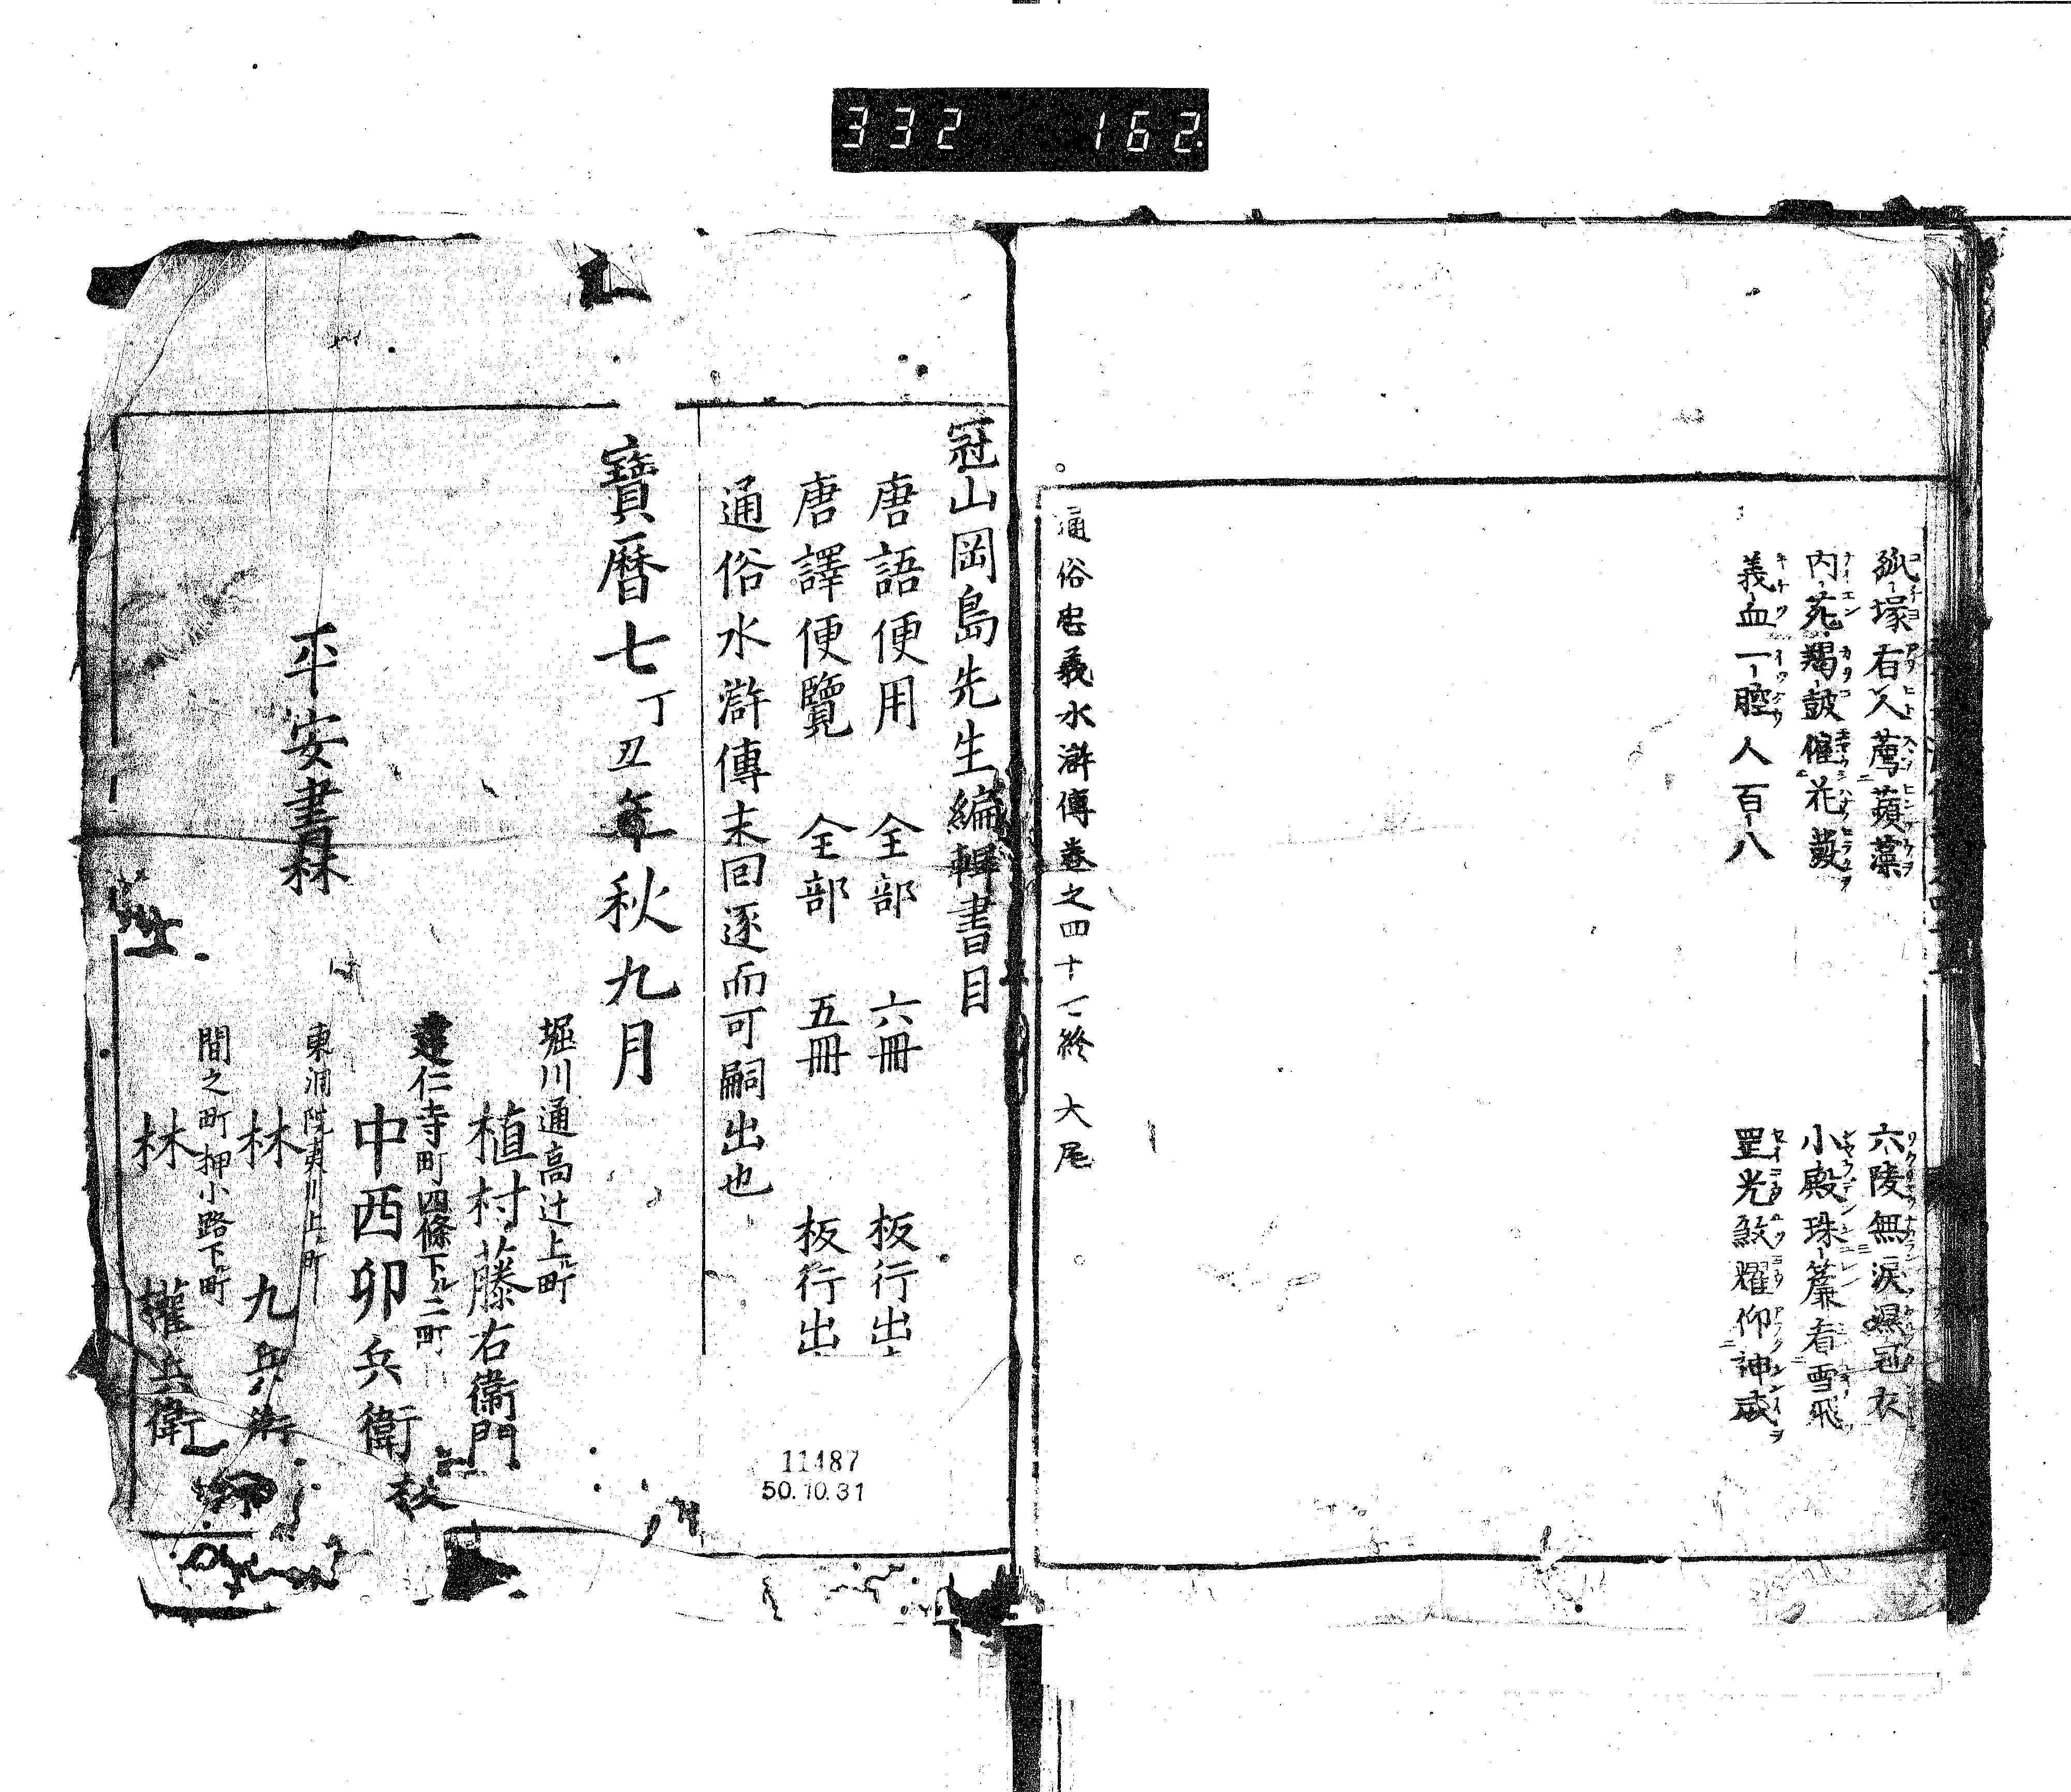 332 162
孤塚有人薦蘋藻 六陵無淚濕冠衣
内苑羯鼓催花發 小殿珠簾看雪飛
義血一腔人百八 罡光煞耀仰神威
通俗忠義水滸傳卷之四十七終 大尾
冠山岡島先生編輯書目
唐語便用 全部 六冊 板行出
唐譯便覽 全部 五冊 板行出
通俗水滸傳末回逐而可嗣出也
寶曆七丁丑年秋九月
平安書林
堀川通高辻上ル町
植村藤右衞門
建仁寺町四條下ル二町
中西卯兵衛
東洞院夷川上ル町
林 九兵衛
間之町押小路下ル町
林 權兵衛
11487
50.10.31